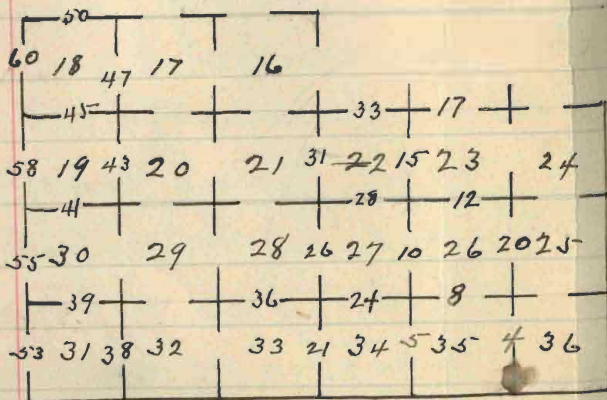 50
60 18 47 17 16
45 33 17
58 19 43 20 21 31 22 15 23 24
41 28 12
55 30 29 28 26 27 10 26 20 25
39 36 24 8
53 31 38 32 33 21 34 5 35 4 36